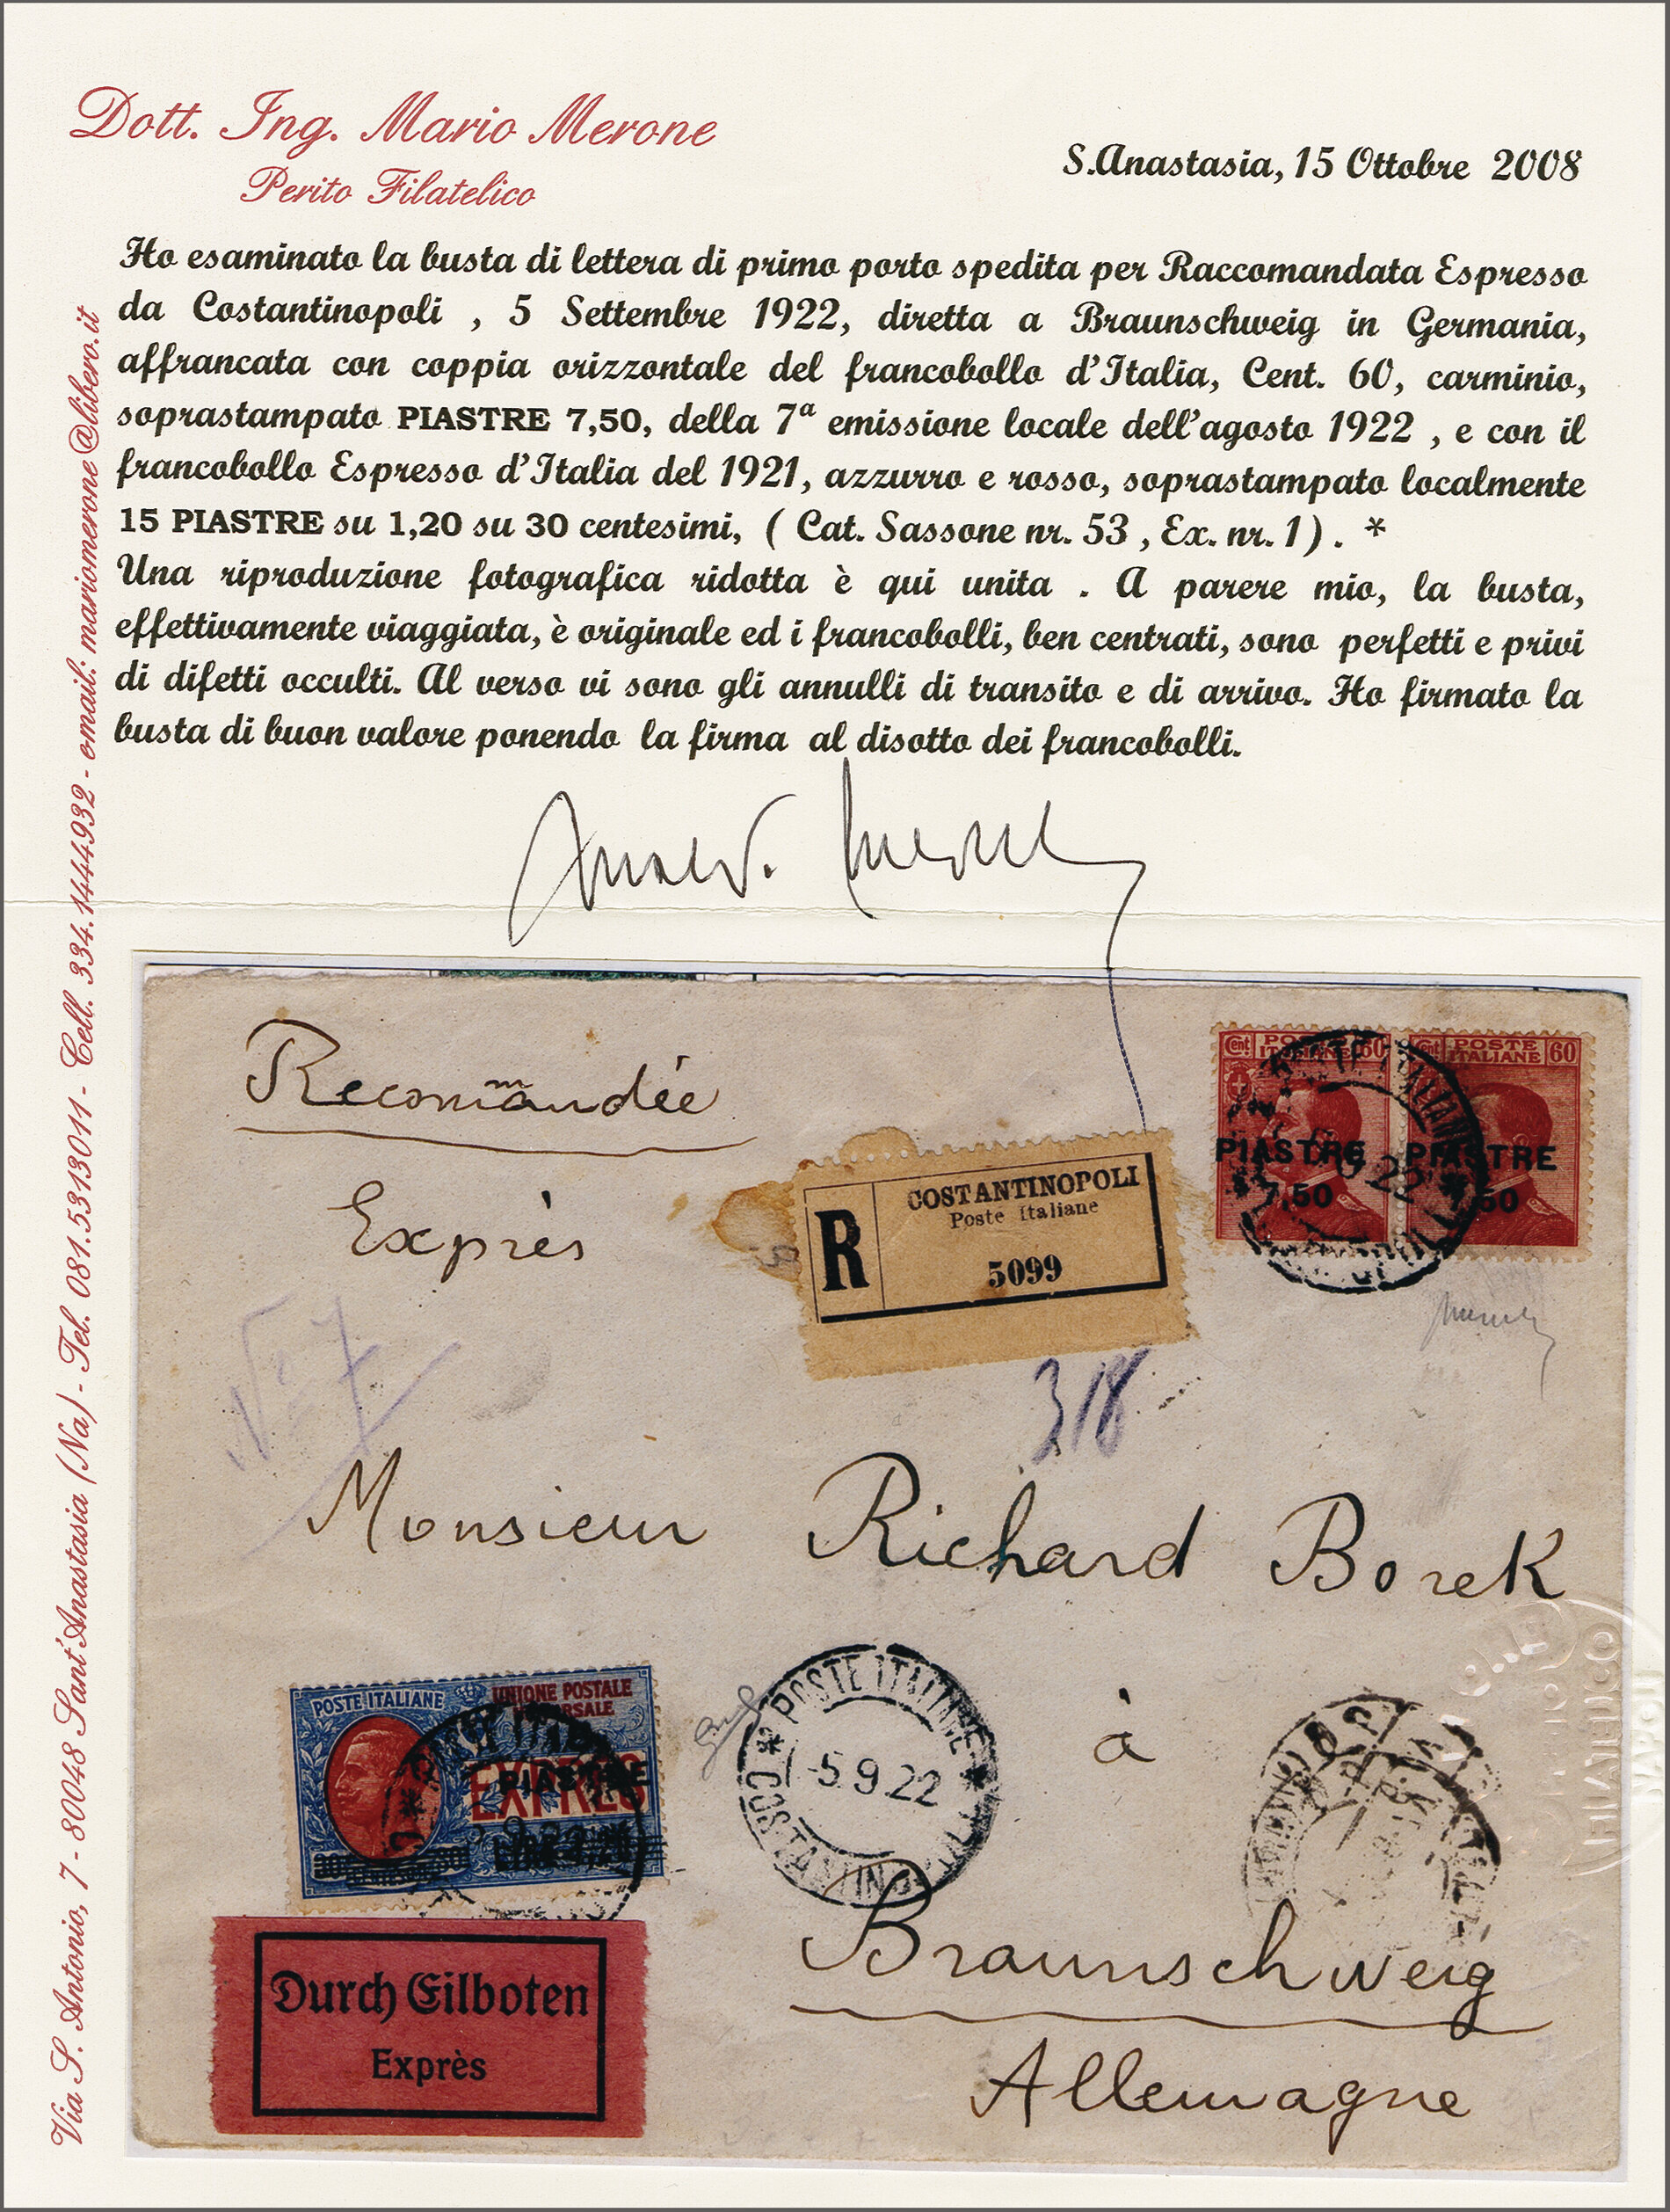 Dott. Ing. Mario Merone
Perito Filatelico
S.Anastasia, 15 Ottobre 2008
Ho esaminato la busta di lettera di primo porto spedita per Raccomandata Espresso
da Costantinopoli , 5 Settembre 1922, diretta a Braunschweig in Germania,
affrancata con coppia orizzontale del francobollo d'Italia, Cent. 60, carminio,
soprastampato PIASTRE 7,50, della 7ª emissione locale dell'agosto 1922 , e con il
francobollo Espresso d'Italia del 1921, azzurro e rosso, soprastampato localmente
15 PIASTRE su 1,20 su 30 centesimi, ( Cat. Sassone nr. 53 , Ex. nr. 1 ) . *
Una riproduzione fotografica ridotta è qui unita . A parere mio, la busta,
effettivamente viaggiata, è originale ed i francobolli, ben centrati, sono perfetti e privi
di difetti occulti. Al verso vi sono gli annulli di transito e di arrivo. Ho firmato la
busta di buon valore ponendo la firma al disotto dei francobolli.
Via S. Antonio, 7 - 80048 Sant'Anastasia (Na) - Tel. 081.5313011 - Cell. 334.1444932 - email: mariomerone@libero.it
Recommandée
Exprès
COSTANTINOPOLI
Poste Italiane
R
5099
Cent POSTE ITALIANE 60
PIASTRE
7,50
Cent POSTE ITALIANE 60
PIASTRE
7,50
318
Monsieur Richard Borek
POSTE ITALIANE
UNIONE POSTALE
EXPRES
PIASTRE
30
POSTE ITALIANE
-5.9.22
COSTANTINOP
à
Braunschweig
Allemagne
Durch Eilboten
Exprès
FILATELICO
NAPOLI